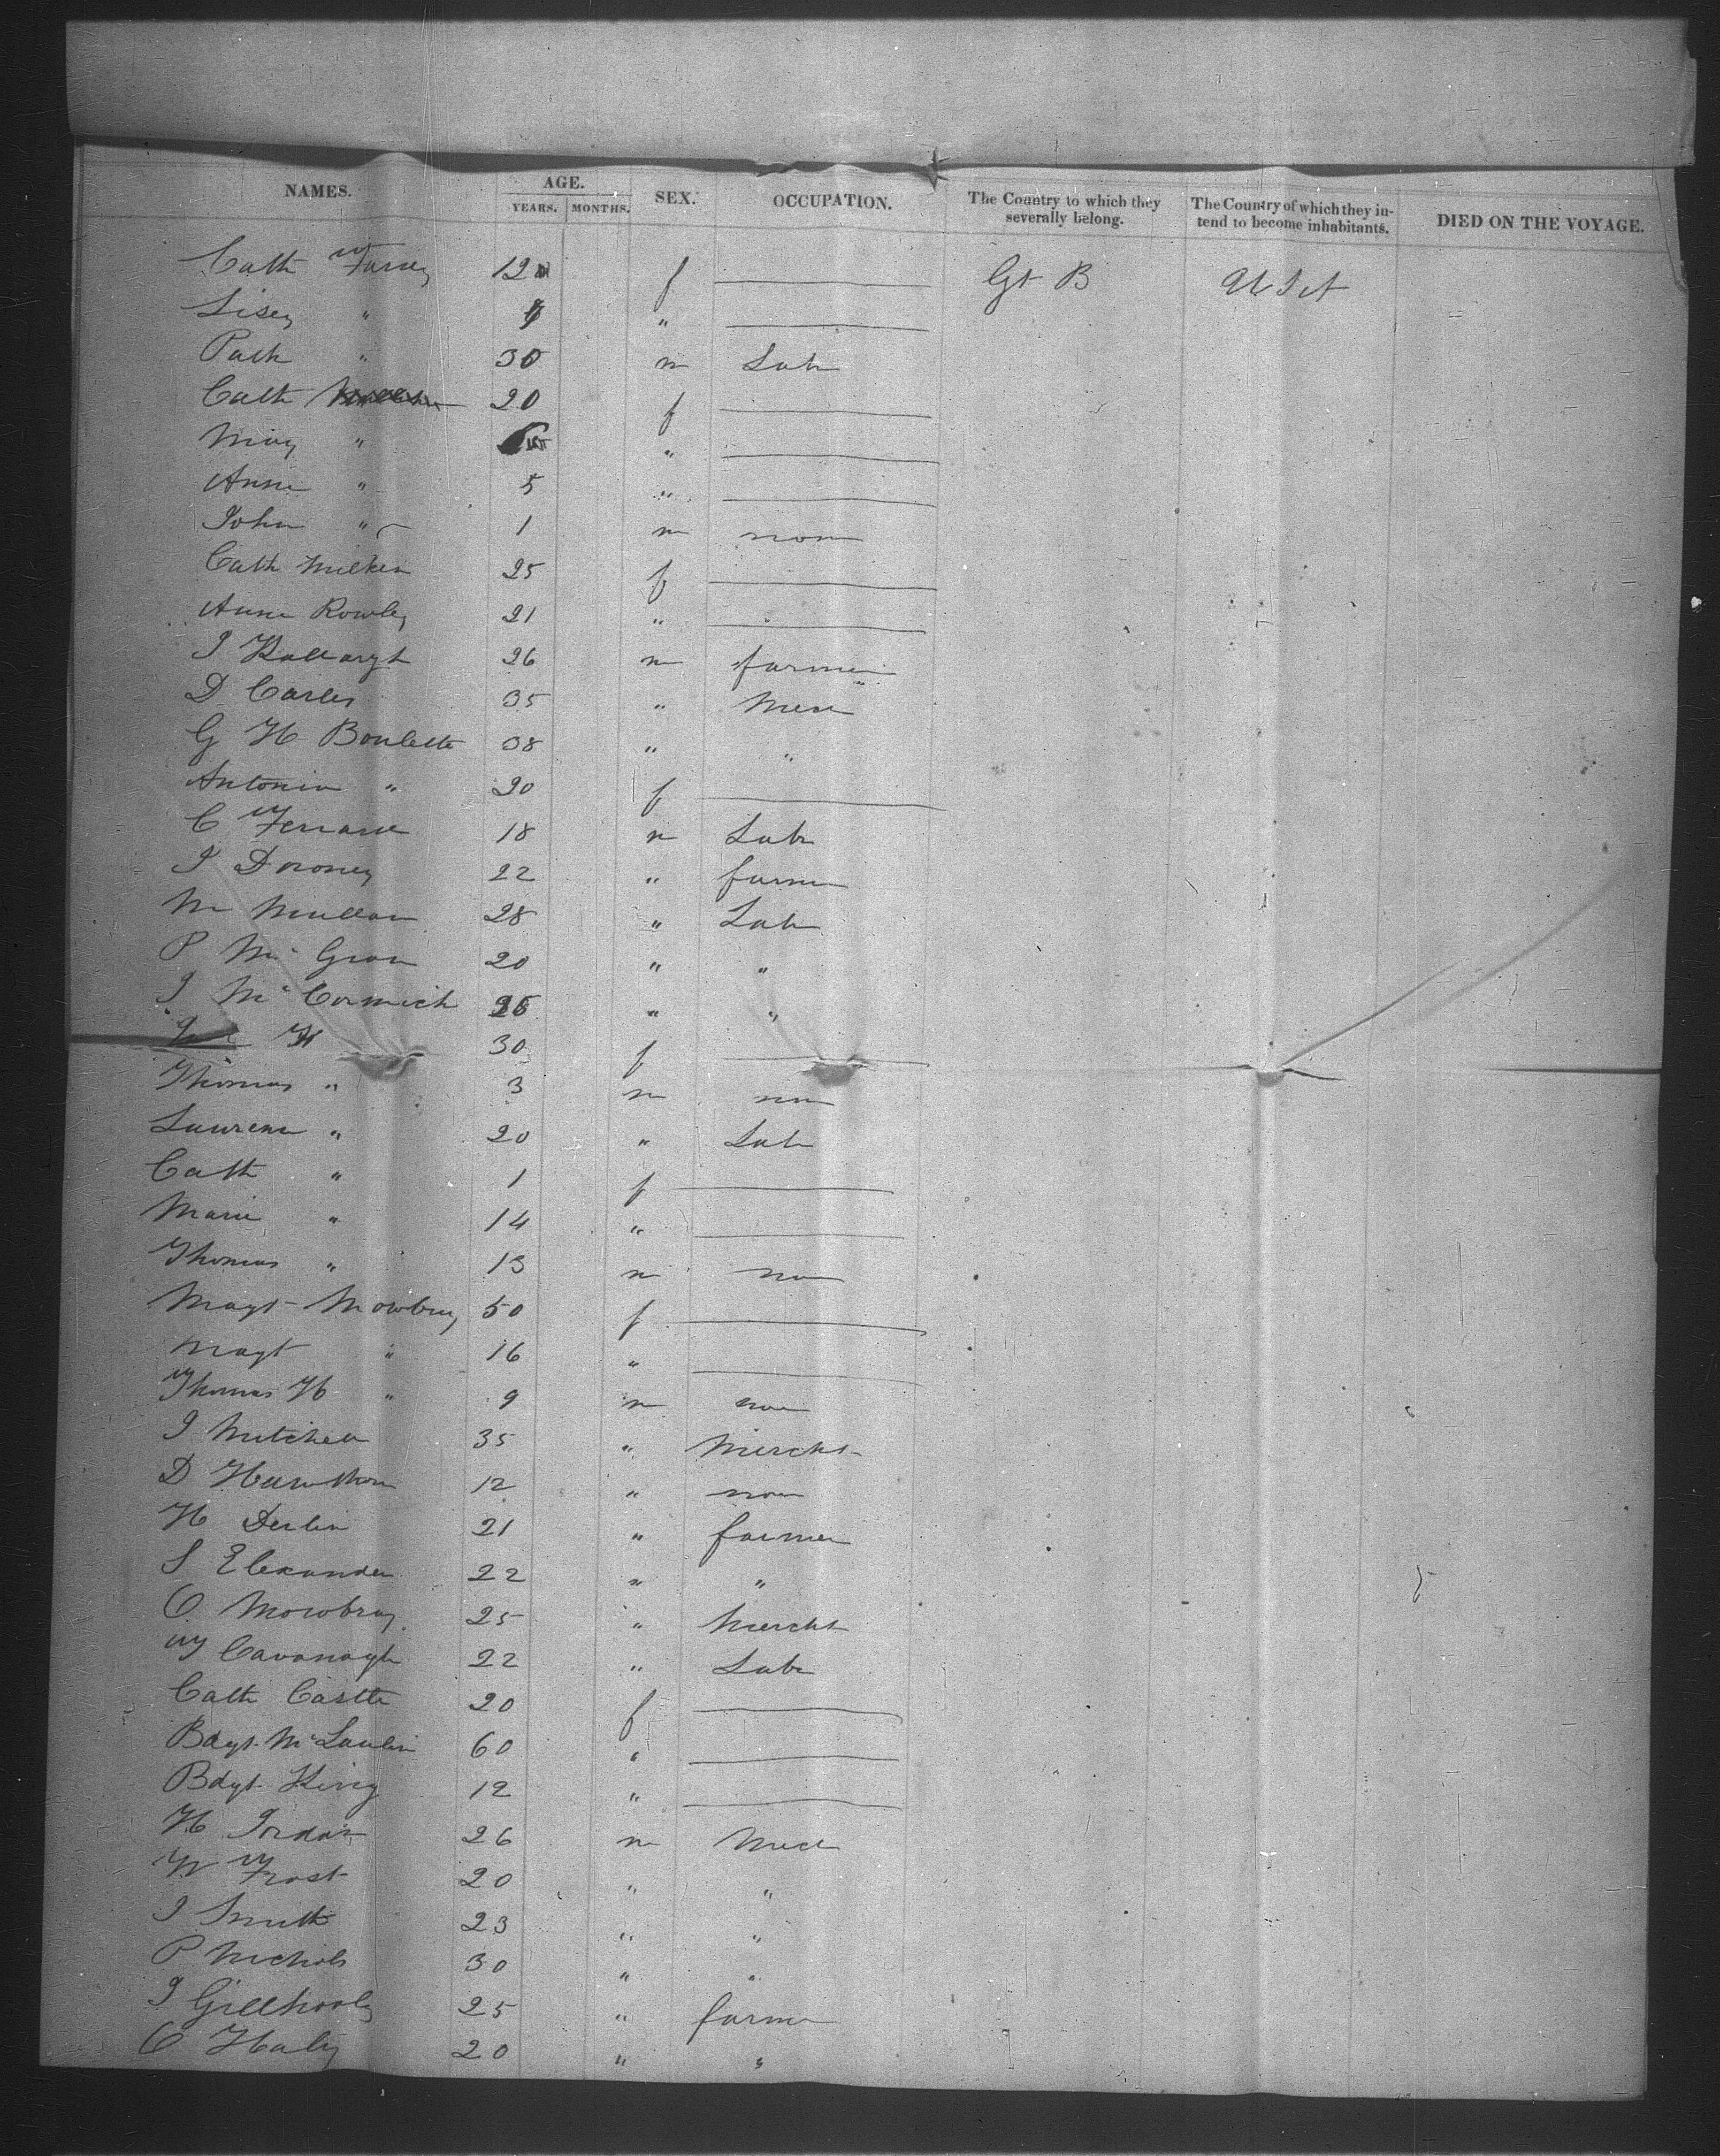 NAMES. AGE. YEARS. MONTHS. SEX. OCCUPATION. The Country to which they severally belong. The Country of which they intend to become inhabitants. DIED ON THE VOYAGE.
Cath 12 f Gt B U S A
Lisey " "
Path " 30 m Lab
Cath 20 f
Mary " "
Anne " 5 "
John " 1 m non
Cath Milken 25 f
Anne Rowley 21 "
J 26 m farmer
D Carley 35 "
G H Boulette 38 " "
Antonia " 20 f
C 18 m Labr
J Doroney 22 " farmr
M Mullan 28 " Lab
P Mc Gran 20 " "
J Mc Cormick " "
30 f
Thomas " 3 m non
Lawrence " 20 " Lab
Cath " 1 f
Marie " 14 "
Thomas " 13 m non
Magt Mowbray 50 f
Magt " 16 "
Thomas H " 9 m non
J Mitchell 35 " Mercht
D Hawthorn 12 " non
H Derlin 21 " farmer
S Elexander 22 " "
O Mowbray 25 " Mercht
W Cavanagh 22 " Labr
Cath Castle 20 f
Bdgt McLaulin 60 "
Bdgt King 12 "
H Jordan 26 m
W Frost 20 " "
J Smith 23 " "
P Nichols 30 " "
J Gillhooly 25 " farmr
O Haley 20 " "